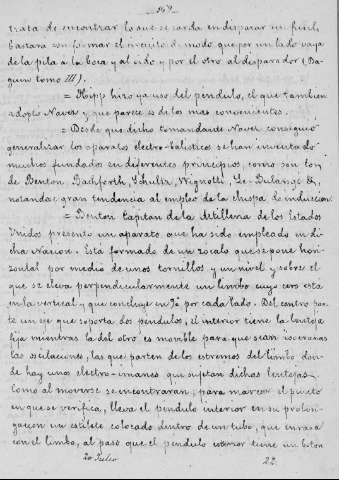 trata de encontrar lo que se tarda en disparar un fusil,
bastara con formar el circuito de modo que por un lado vaya
de la pila a la boca y al eido y por el otro al disparador (Da-
guin tomo III).
= Hipp hizo ya uso del pendulo, el que tambien
adopto Navez y que parece es de los mas convenientes.
= Desde que dicho comandante Navez consiguió
generalizar los aparatos electro-balisticos se han inventado
muchos fundados en diferentes principios, como son los
de Benton, Bashforth, Schultz, Vignotti, Le-Bulangé &,
notandose gran tendencia al empleo de la chispa de induccion.
= Benton Capitan de la Artilleria de los Estados
Unidos presentó un aparato que ha sido empleado en di-
cha Nacion. Está formado de un zócalo que se pone hori-
zontal por medio de unos tornillos y un nivel y sobre el
que se eleva perpendicularmente un limbo cuyo cero está
en la vertical y que concluye en 90 por cada lado. Del centro par-
te un eje que soporta dos péndulos, el interior tiene la lenteja
fija mientras la del otro es movible para que sean isocronas
las oscilaciones, las que parten de los estremos del limbo don-
de hay unos electro-imanes que sujetan dichas lentejas.
Como al moverse se encontraran, para marcar el punto
en que se verifica, lleva el pendulo interior en su prolon-
gacion un estilete colocado dentro de un tubo, que enrasa
con el limbo, al paso que el péndulo esterior tiene un boton
22.